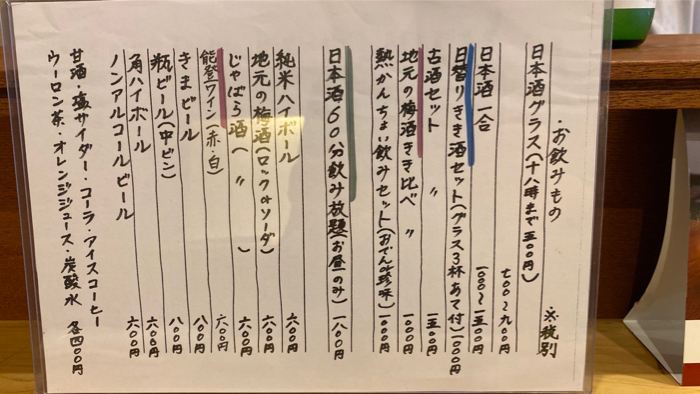 ・お飲みもの ※税別
日本酒グラス(十八時まで五〇〇円) 七〇〇〜九〇〇円
日本酒一合 一一〇〇〜一五〇〇円
日替りきき酒セット(グラス3杯あて付)一〇〇〇円
古酒セット 〃 一五〇〇円
地元の梅酒きき比べ 〃 一〇〇〇円
熱かんちょい飲みセット(おでんor珍味)一〇〇〇円
日本酒60分飲み放題(お昼のみ)一八〇〇円
純米ハイボール 六〇〇円
地元の梅酒(ロックorソーダ) 六〇〇円
じゃばら酒( 〃 ) 六〇〇円
能登ワイン(赤・白) 六〇〇円
きまビール 八〇〇円
瓶ビール(中ビン) 八〇〇円
角ハイボール 六〇〇円
ノンアルコールビール 六〇〇円
甘酒・塩サイダー・コーラ・アイスコーヒー
ウーロン茶・オレンジジュース・炭酸水 各四〇〇円